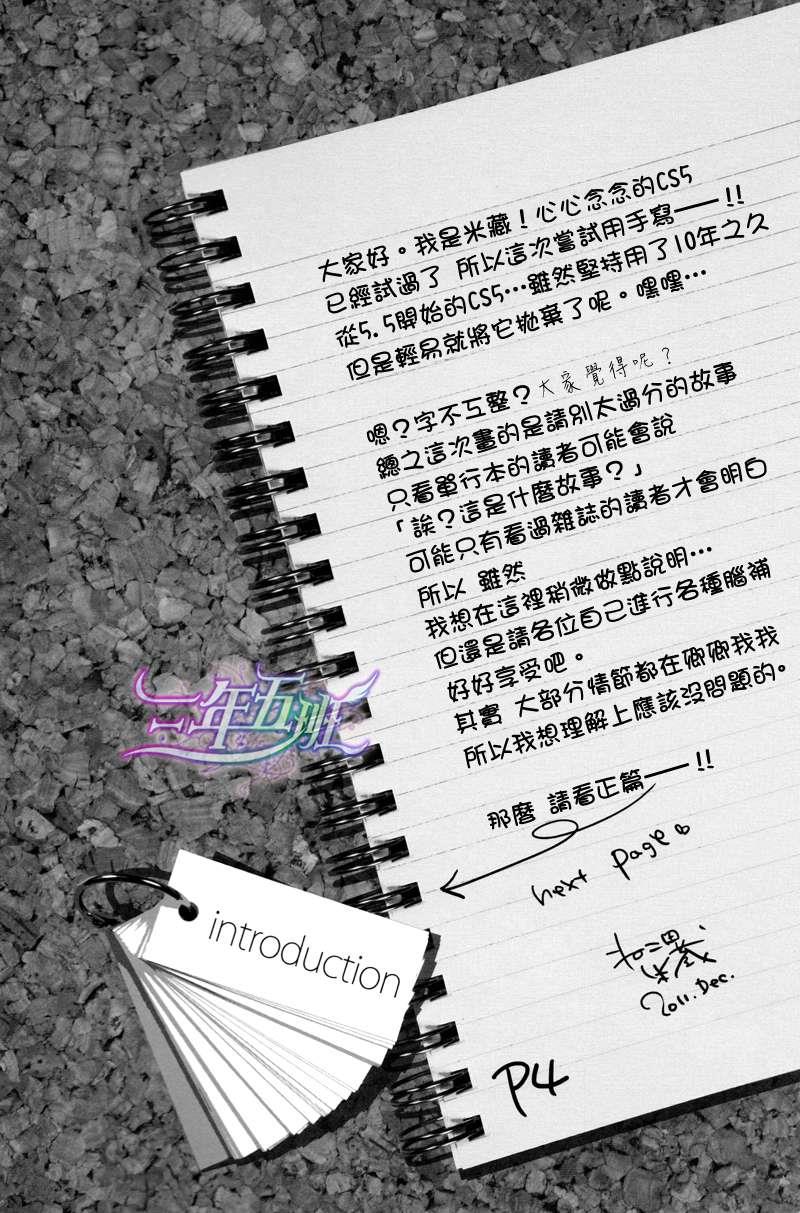 大家好。我是米藏！心心念念的CS5
已經試過了 所以這次嘗試用手寫——!!
從5.5開始的CS5…雖然堅持用了10年之久
但是輕易就將它拋棄了呢。嘿嘿…
嗯？字不工整？大家覺得呢？
總之這次畫的是請別太過分的故事
只看單行本的讀者可能會說
「誒？這是什麼故事？」
可能只有看過雜誌的讀者才會明白
所以 雖然
我想在這裡稍微做點說明…
但還是請各位自己進行各種腦補
好好享受吧。
其實 大部分情節都在卿卿我我
所以我想理解上應該沒問題的。
那麼 請看正篇——!!
next page
2011.Dec.
P4
三年五班
introduction